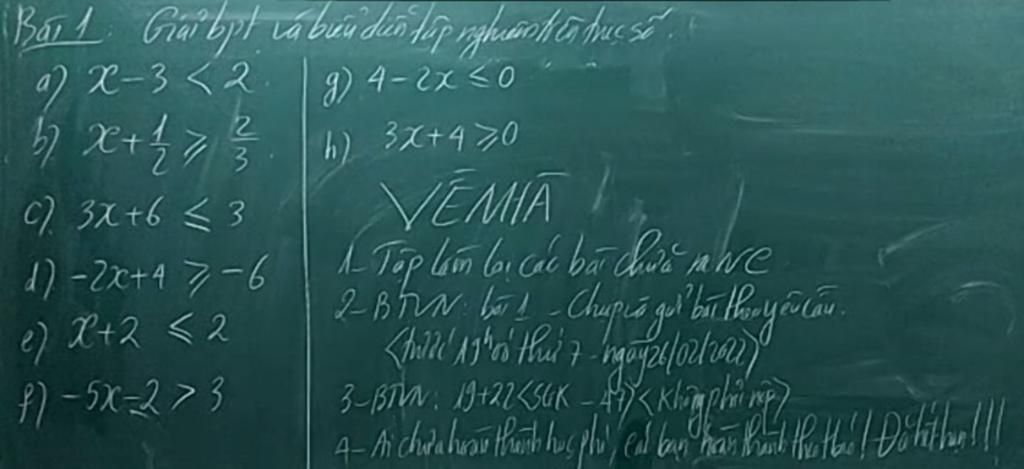 Bài 1: Giải bpt và biểu diễn tập nghiệm trên trục số.
a) x - 3 < 2
b) x + 1/2 ≥ 2/3
c) 3x + 6 ≤ 3
d) -2x + 4 ≥ -6
e) x + 2 ≤ 2
f) -5x - 2 > 3
g) 4 - 2x ≤ 0
h) 3x + 4 ≥ 0
VỀ NHÀ
1- Tập làm lại các bài chữa
2- BTVN: bài 1 - Chụp và gửi bài theo yêu cầu.
<trước 19h00 thứ 7 - ngày 26/02/2022>
3- BTVN: 19+22 <SGK - 47> <Không phải nộp>
4- Ai chưa hoàn thành học phí, các bạn hoàn thành !!!